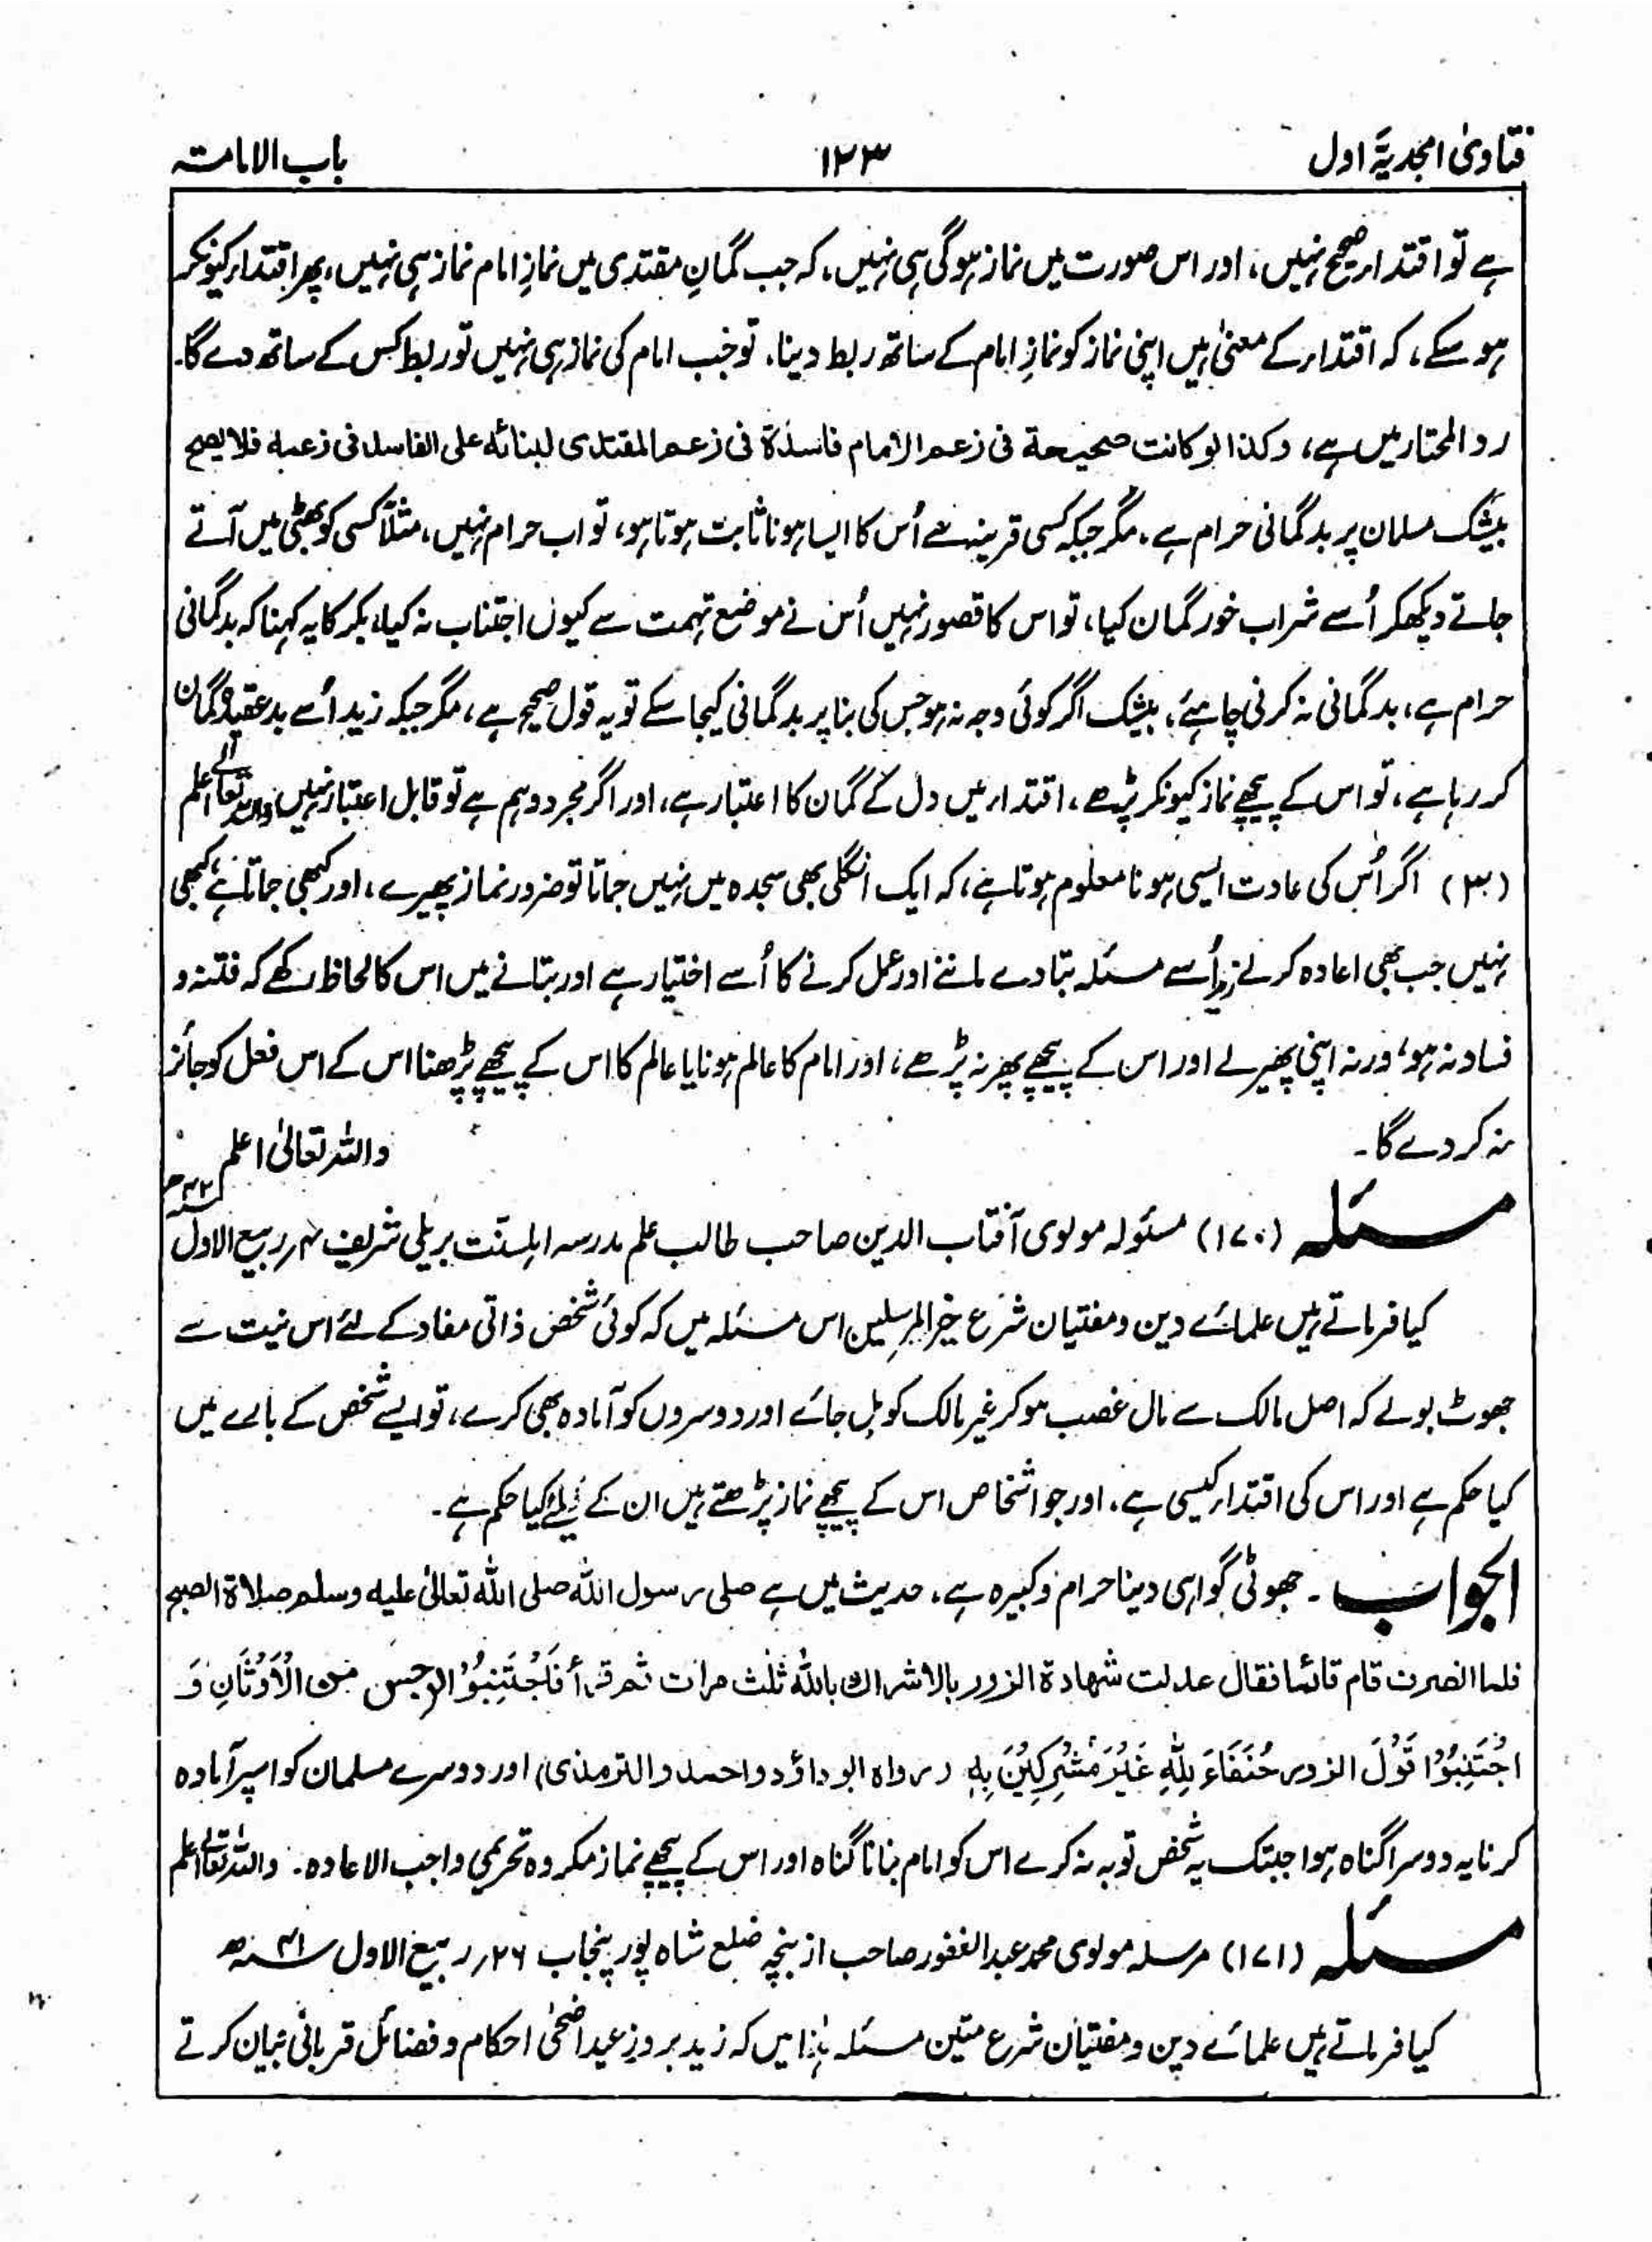 فتاویٰ امجدیَّہ اول ۱۲۳ باب الامامتہ
ہے تو اقتدار صحیح نہیں، اور اس صورت میں نماز ہوگی ہی نہیں، کہ جب گمانِ مقتدی میں نمازِ امام نماز ہی نہیں، پھر اقتدار کیونکر
ہو سکے، کہ اقتدار کے معنیٰ ہیں اپنی نماز کو نمازِ امام کے ساتھ ربط دینا، تو جب امام کی نماز ہی نہیں تو ربط کس کے ساتھ دے گا۔
رد المحتار میں ہے، وکذا لو کانت صحیحة فی زعم الامام فاسدة فی زعم المقتدی لبنائه علی الفاسد فی زعمه فلا یصح
بیشک مسلمان پر بدگمانی حرام ہے، مگر جبکہ کسی قرینہ سے اُس کا ایسا ہونا ثابت ہوتا ہو، تو اب حرام نہیں، مثلاً کسی کو بھٹی میں آتے
جاتے دیکھکر اُسے شراب خور گمان کیا، تو اس کا قصور نہیں اُس نے موضع تہمت سے کیوں اجتناب نہ کیا، بکر کا یہ کہنا کہ بدگمانی
حرام ہے، بدگمانی نہ کرنی چاہئے، بیشک اگر کوئی وجہ نہ ہو جس کی بنا پر بدگمانی کیجا سکے تو یہ قول صحیح ہے، مگر جبکہ زید اُسے بدعقیدہ گمان
کر رہا ہے، تو اس کے پیچھے نماز کیونکر پڑھے، اقتدار میں دل کے گمان کا اعتبار ہے، اور اگر مجرد وہم ہے تو قابل اعتبار نہیں واللہ تعالےٰ اعلم
(۳) اگر اُس کی عادت ایسی ہونا معلوم ہوتا ہے، کہ ایک انگلی بھی سجدہ میں نہیں جماتا تو ضرور نماز پھیرے، اور کبھی جماتا ہے کبھی
نہیں جب بھی اعادہ کرلے اُسے مسئلہ بتا دے ماننے اور عمل کرنے کا اُسے اختیار ہے اور بتانے میں اس کا لحاظ رکھے کہ فتنہ و
فساد نہ ہو، ورنہ اپنی پھیر لے اور اس کے پیچھے پھر نہ پڑھے، اور امام کا عالم ہونا یا عالم کا اس کے پیچھے پڑھنا اس کے اس فعل کو جائز
نہ کر دے گا۔ واللہ تعالیٰ اعلم
مسئلہ (۱۷۰) مسئولہ مولوی آفتاب الدین صاحب طالب علم مدرسہ اہلسنّت بریلی شریف ۴؍ ربیع الاول ۴۲ھ
کیا فرماتے ہیں علمائے دین و مفتیان شرع خیر المرسلین اس مسئلہ میں کہ کوئی شخص ذاتی مفاد کے لئے اس نیت سے
جھوٹ بولے کہ اصل مالک سے مال غصب ہو کر غیر مالک کو مل جائے اور دوسروں کو آمادہ بھی کرے، تو ایسے شخص کے بارے میں
کیا حکم ہے اور اس کی اقتدار کیسی ہے، اور جو اشخاص اس کے پیچھے نماز پڑھتے ہیں ان کے لئے کیا حکم ہے۔
الجواب۔ جھوٹی گواہی دینا حرام و کبیرہ ہے، حدیث میں ہے صلی رسول الله صلی الله تعالیٰ علیه وسلم صلاة الصبح
فلما انصرف قام قائما فقال عدلت شهادة الزور بالاشراك بالله ثلٰث مرات ثم قرأ فَاجْتَنِبُوْا الرجس من الْاَوْثَانِ وَ
اجْتَنِبُوْا قَوْلَ الزور حُنَفَاءَ لِلّٰهِ غَيْرَ مُشْرِكِيْنَ بِهٖ (رواه ابو داؤد واحمد والترمذی) اور دوسرے مسلمان کو اسپر آمادہ
کرنا یہ دوسرا گناہ ہوا جبتک یہ شخص توبہ نہ کرے اس کو امام بنانا گناہ اور اس کے پیچھے نماز مکروہ تحریمی واجب الاعادہ۔ واللہ تعالےٰ اعلم
مسئلہ (۱۷۱) مرسلہ مولوی محمد عبدالغفور صاحب از بنچہ ضلع شاہ پور پنجاب ۲۶؍ ربیع الاول ۴۱ھ
کیا فرماتے ہیں علمائے دین و مفتیان شرع متین مسئلہ ہٰذا میں کہ زید بروز عید اضحیٰ احکام و فضائل قربانی بیان کرتے